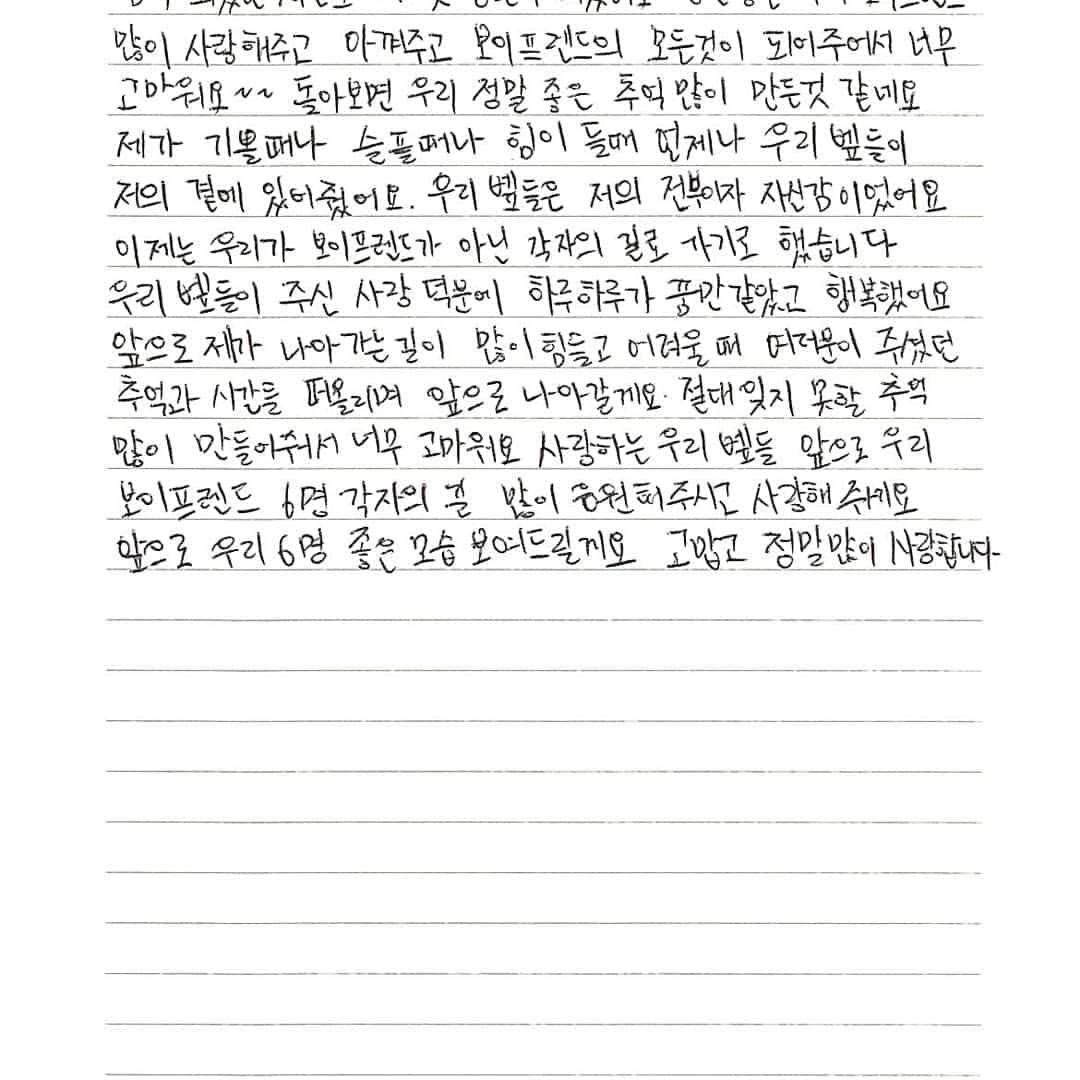 많이 사랑해주고 아껴주고 보이프렌드의 모든것이 되어주어서 너무
고마워요~~ 돌아보면 우리 정말 좋은 추억 많이 만든것 같네요
제가 기쁠때나 슬플때나 힘이 들때 언제나 우리 벺들이
저의 곁에 있어줬어요. 우리 벺들은 저의 전부이자 자신감이었어요
이제는 우리가 보이프렌드가 아닌 각자의 길로 가기로 했습니다
우리 벺들이 주신 사랑 덕분에 하루하루가 풍만같았고 행복했어요
앞으로 제가 나아가는길이 많이 힘들고 어려울 때 여러분이 주셨던
추억과 시간들 떠올리며 앞으로 나아갈게요. 절대 잊지 못할 추억
많이 만들어줘서 너무 고마워요 사랑하는 우리 벺들 앞으로 우리
보이프렌드 6명 각자의 길 많이 응원해주시고 사랑해 주세요
앞으로 우리 6명 좋은 모습 보여드릴게요 고맙고 정말많이 사랑합니다-